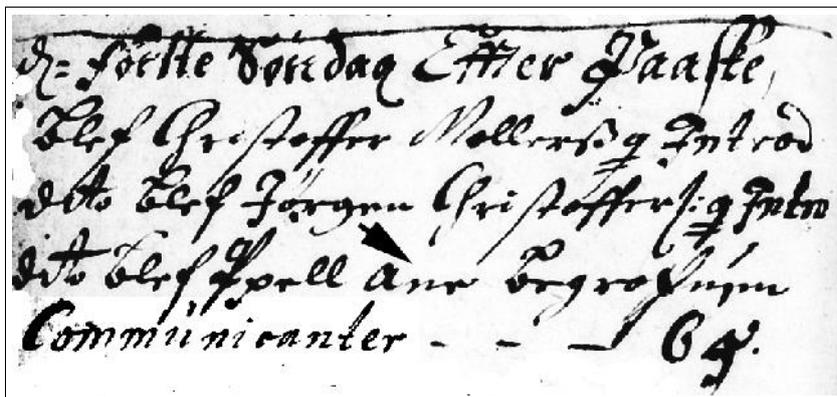 d= første Søndag Effter Paaske,
Blef Christoffer Møllers q Introd
dito Blef Jørgen Christoffers: q Intro
dito Blef Spell Ane Begrafuen
Communicanter - - - 64.